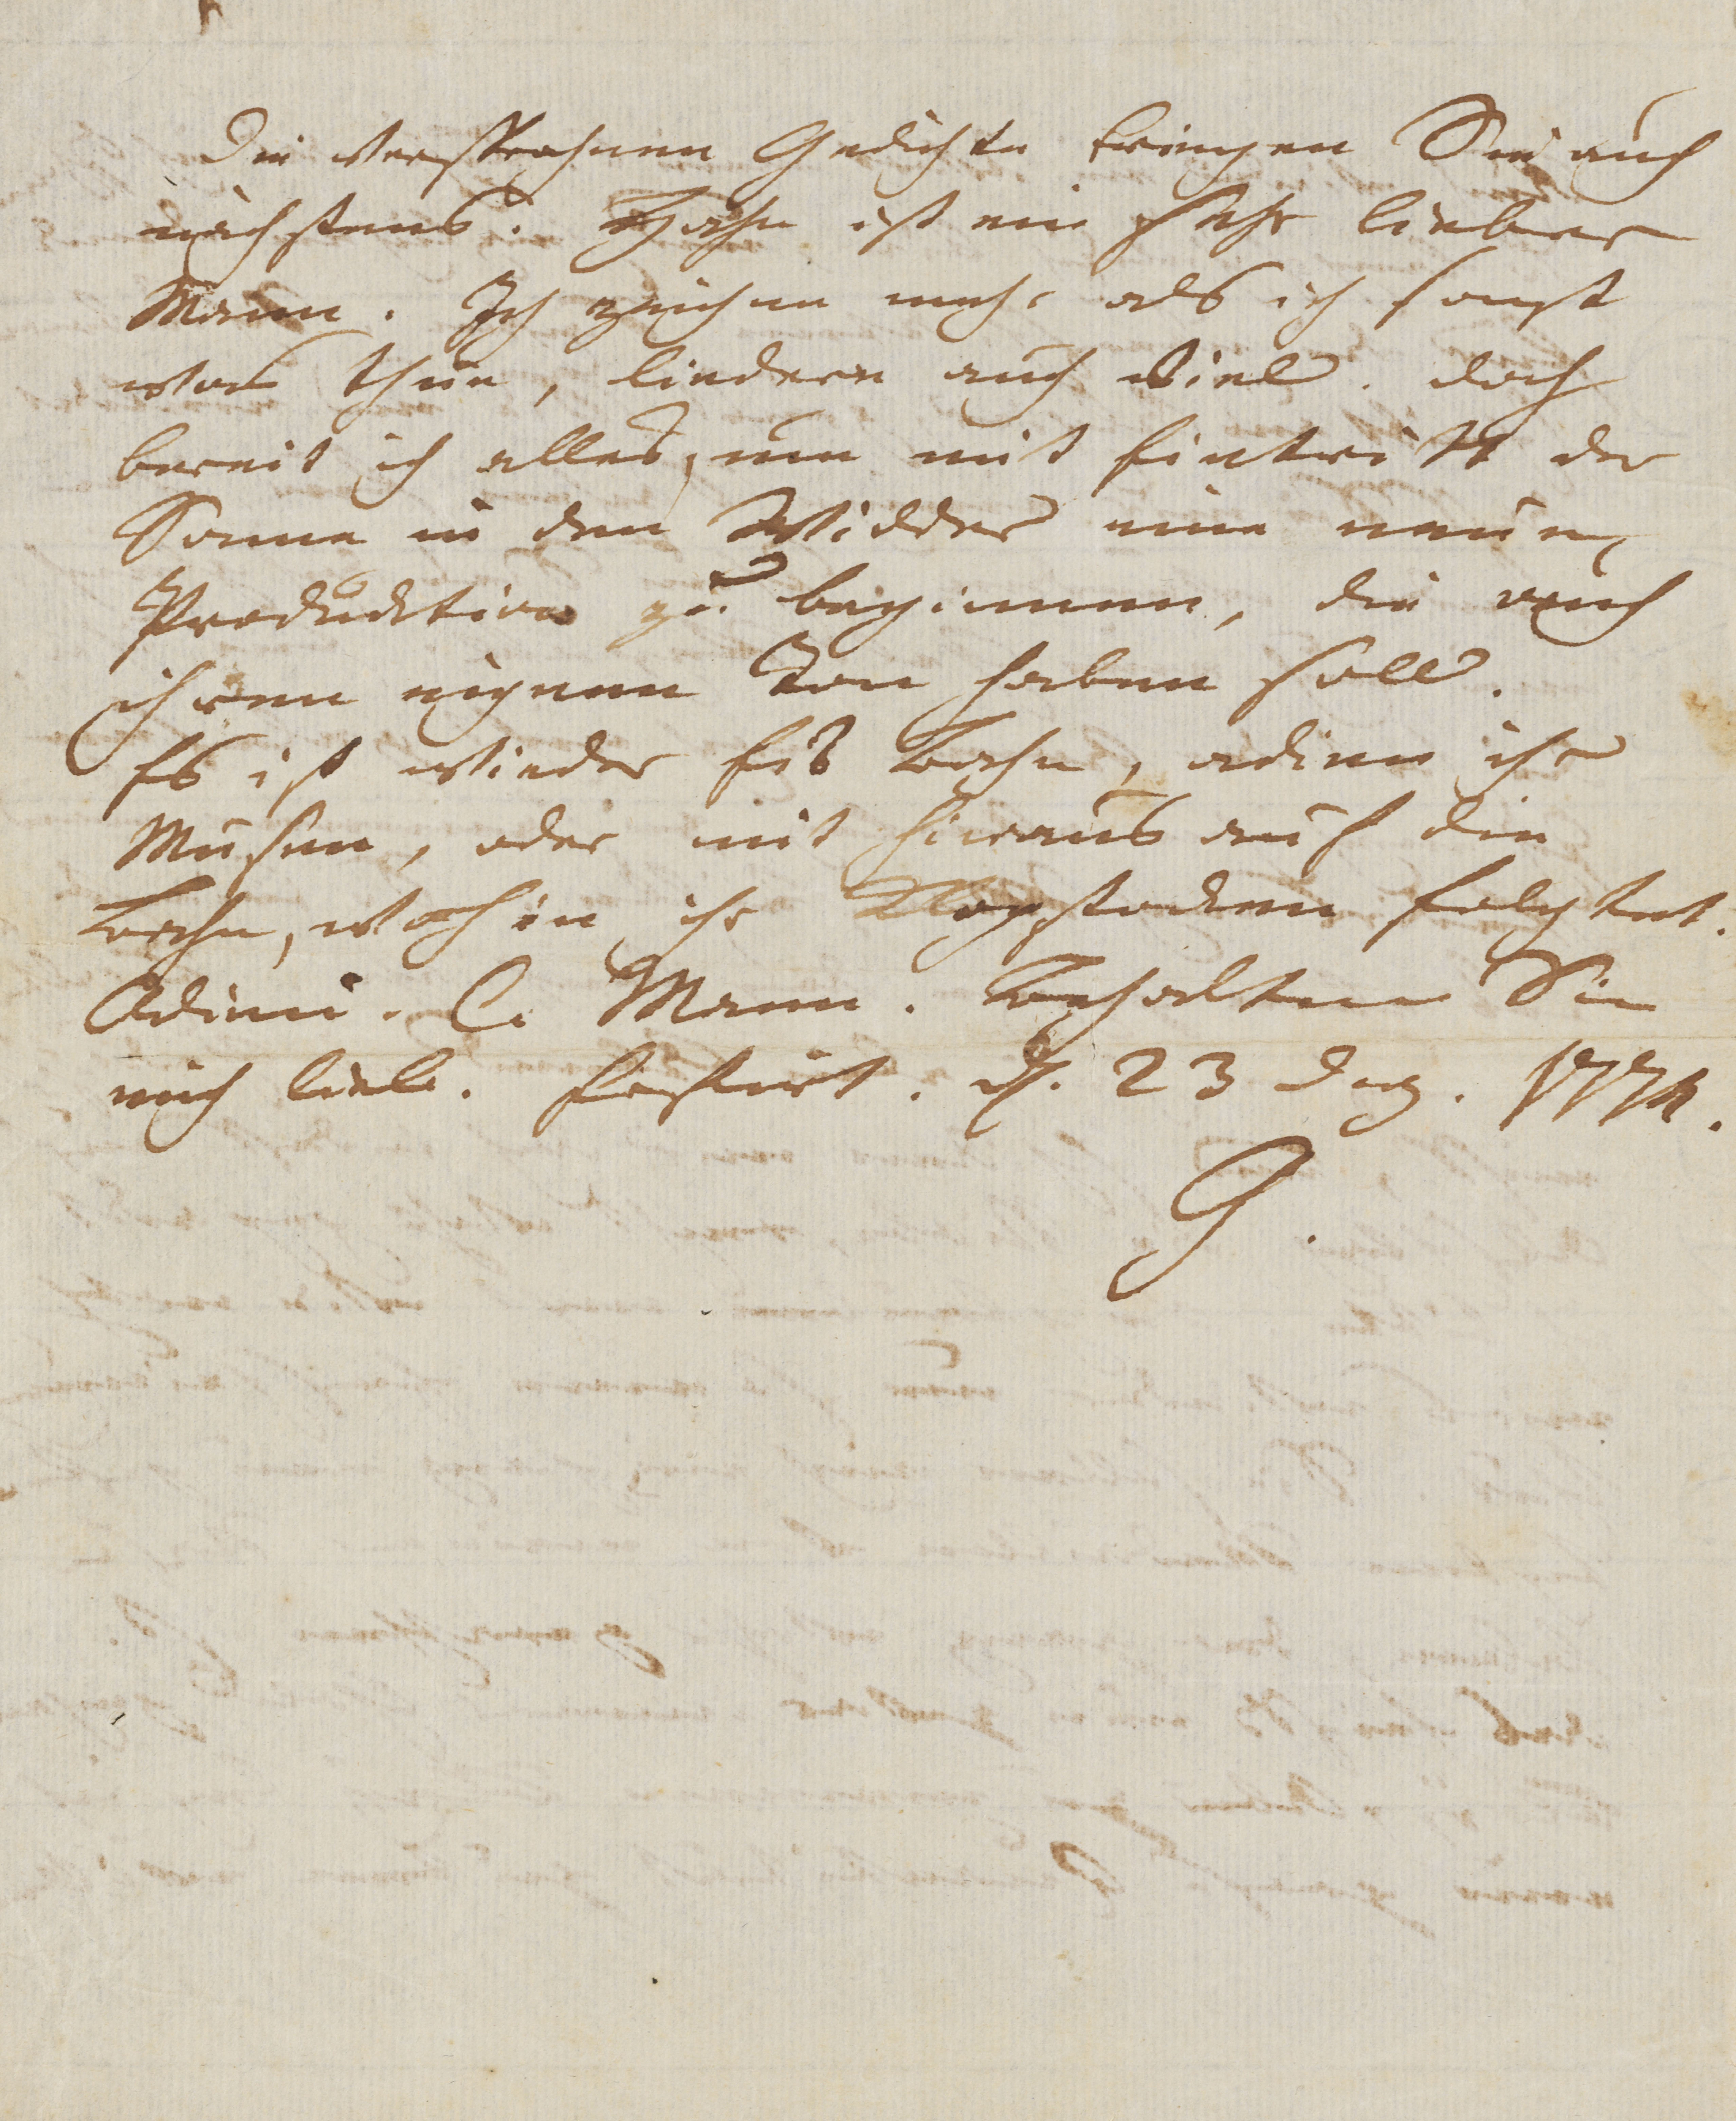 Die versprochnen Gedichte kriegen Sie auch
nächstens. Hahn ist ein sehr lieber
Mann. Ich zeichne mehr als ich sonst
was thue, liedere auch viel. Doch
bereit ich alles, um mit Eintritt der
Sonne in den Widder eine neue
Producktion zu beginnen, die auch
ihren eignen Ton haben soll.
Es ist wieder Eis Bahn, adieu ihr
Musen, oder mit hinaus auf die
Bahn, wohin ihr Klopstocken folgtet.
Adieu. l. Mann. Behalten Sie
mich lieb. Frfurt. d. 23 Dez. 1774.
G.